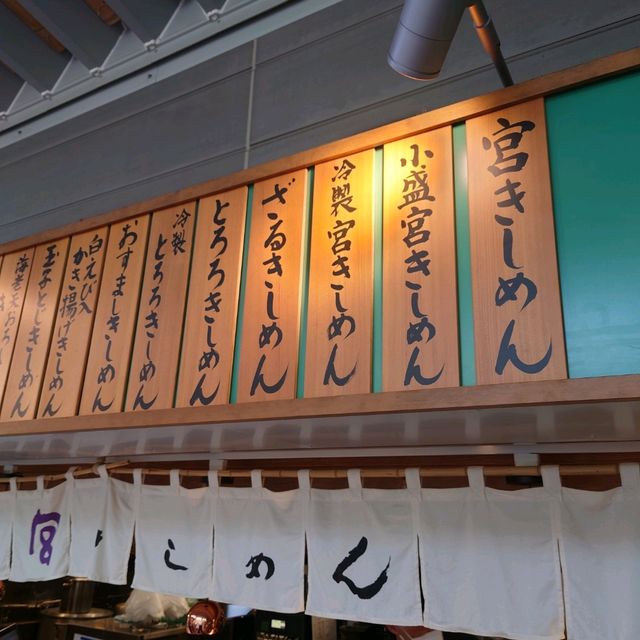 宮きしめん
小盛宮きしめん
冷製宮きしめん
ざるきしめん
とろろきしめん
冷製とろろきしめん
おすましきしめん
白えび入
かき揚げきしめん
玉子とじきしめん
宮きしめん